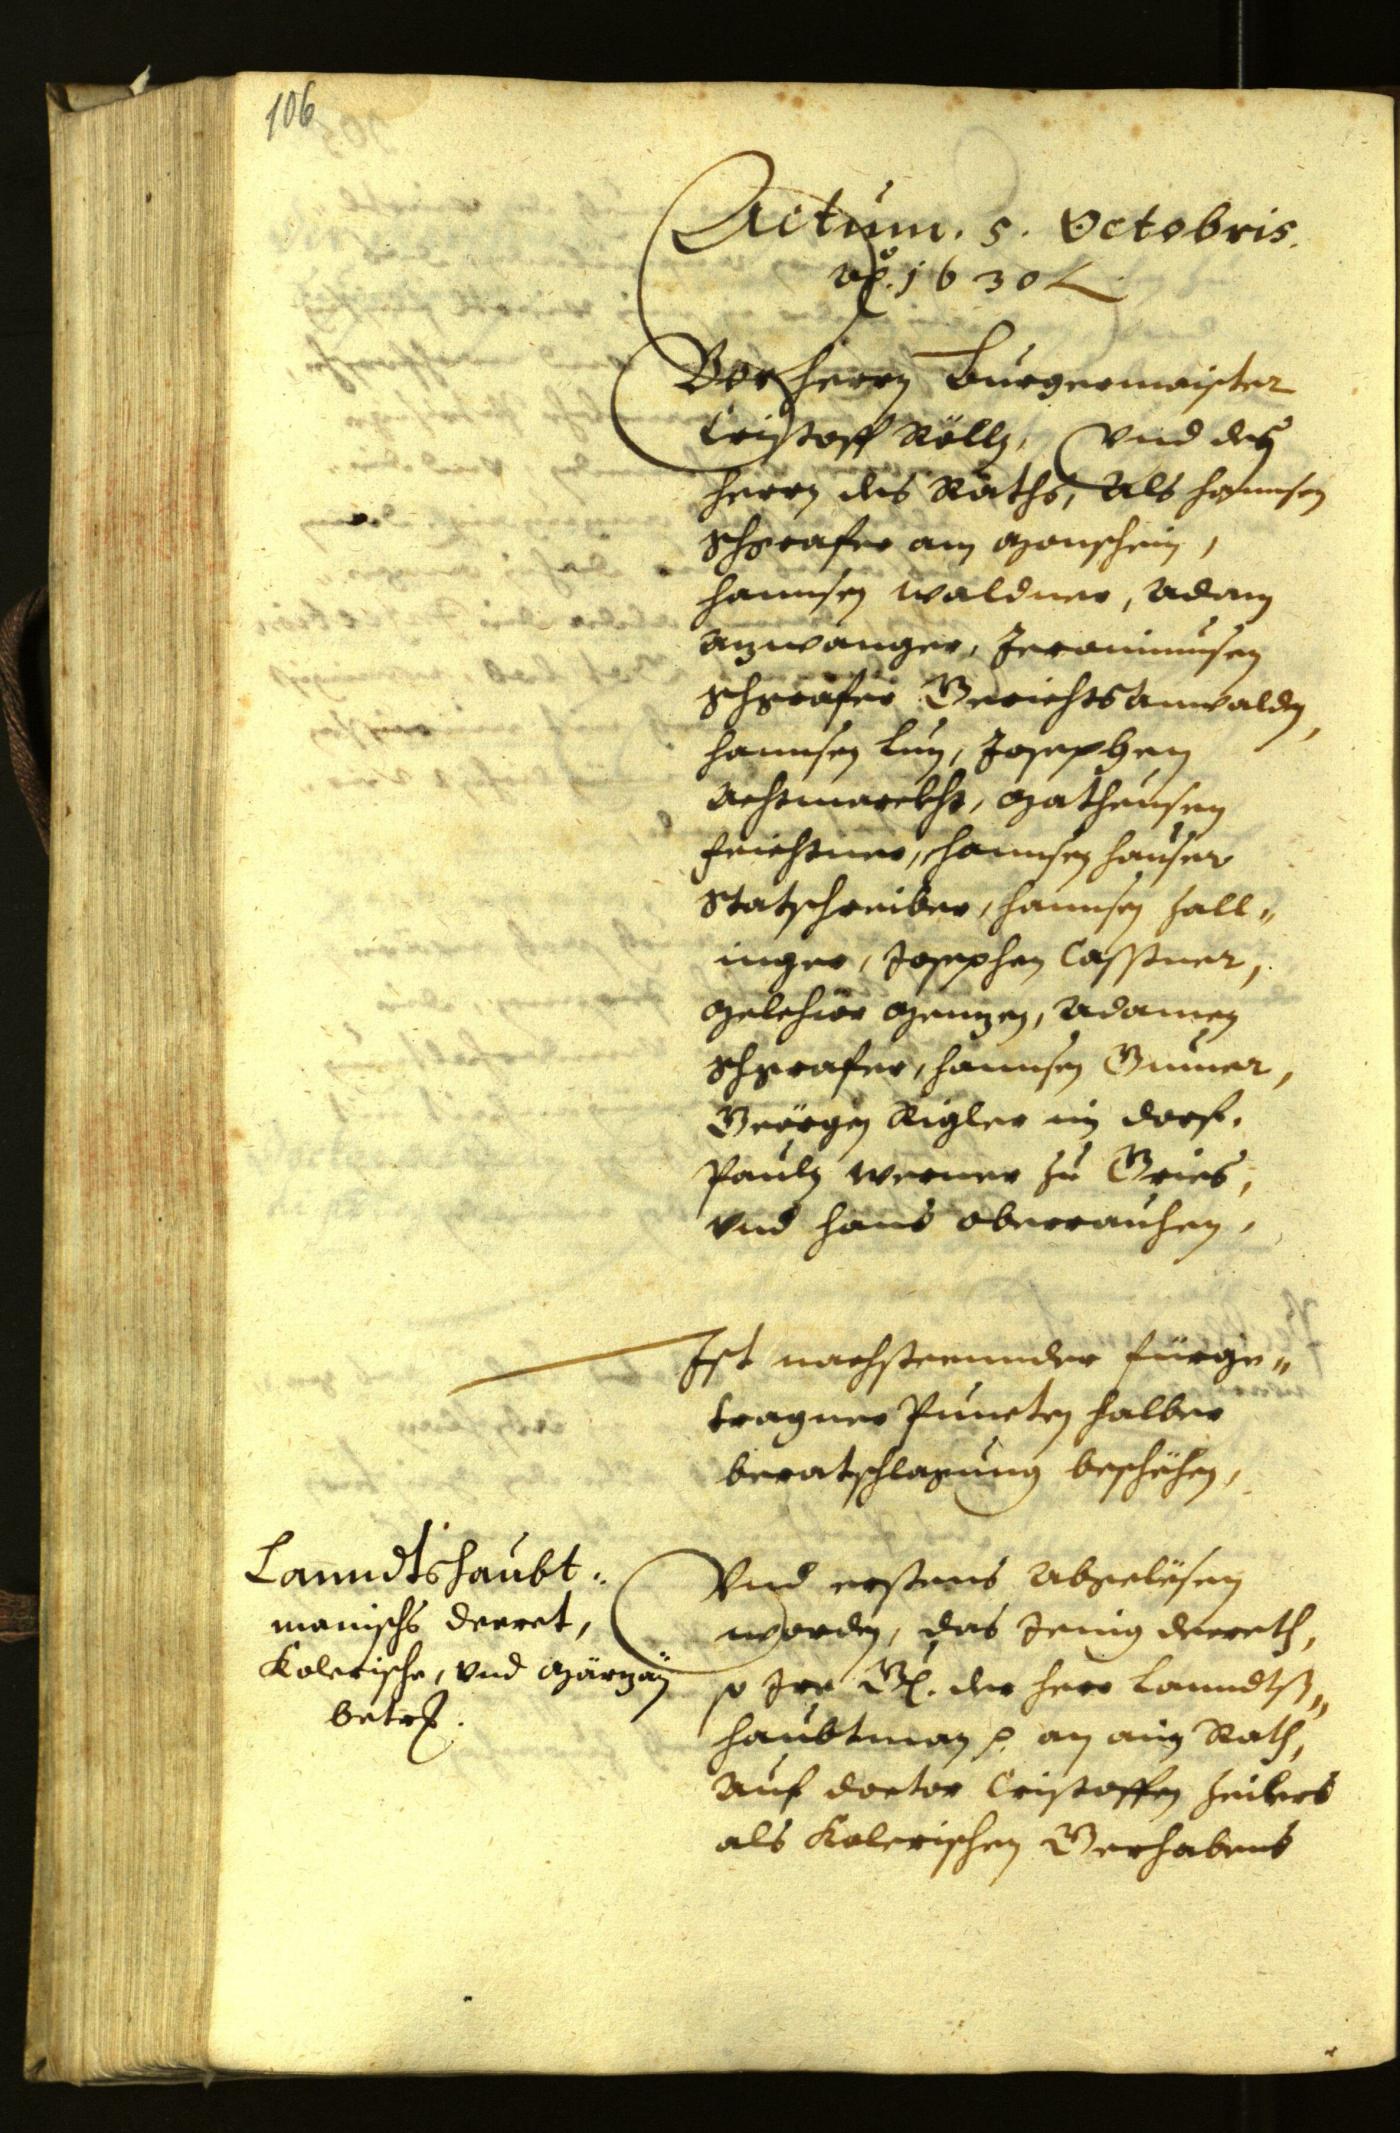 106
Actum. 5. Octobris.
Ao. 1630
Vor herrn Burgermaister
Cristoff Röll, Vnd den
herrn des Raths, Als Hannsen
Schgrafer am Monschein,
Hannsen Waldner, Adam
Anzwanger, Jeronimusen
Schgrafer Gerichts Anwalden,
Hannsen Lun, Josephen
Achtmarckht, Matheusen
Feichtner, Hannsen Hauser
Statschreiber, Hannsen Hall„
inger, Josephen Casstner,
Melchior Menzen, Adamen
Schgrafer, Hannsen Gumer,
Geörgen Rigler im dorf,
Pauln Werner zu Gries,
vnd Hans Oberrauhen,
Ist nachsteennder fürge„
tragner Puncten halber
beratschlagung beschehen,
Lanndtshaubt„
manischs decret,
Kolerische, vnd Märzän
betrf.
Vnd erstens Abgelesen
worden, das Jenig decreth,
so Ire Gn. der herr Lanndtß„
haubtman p. an ain Rath,
Auf doctor Cristoffen Heibers
als Kolerischen Gerhabens